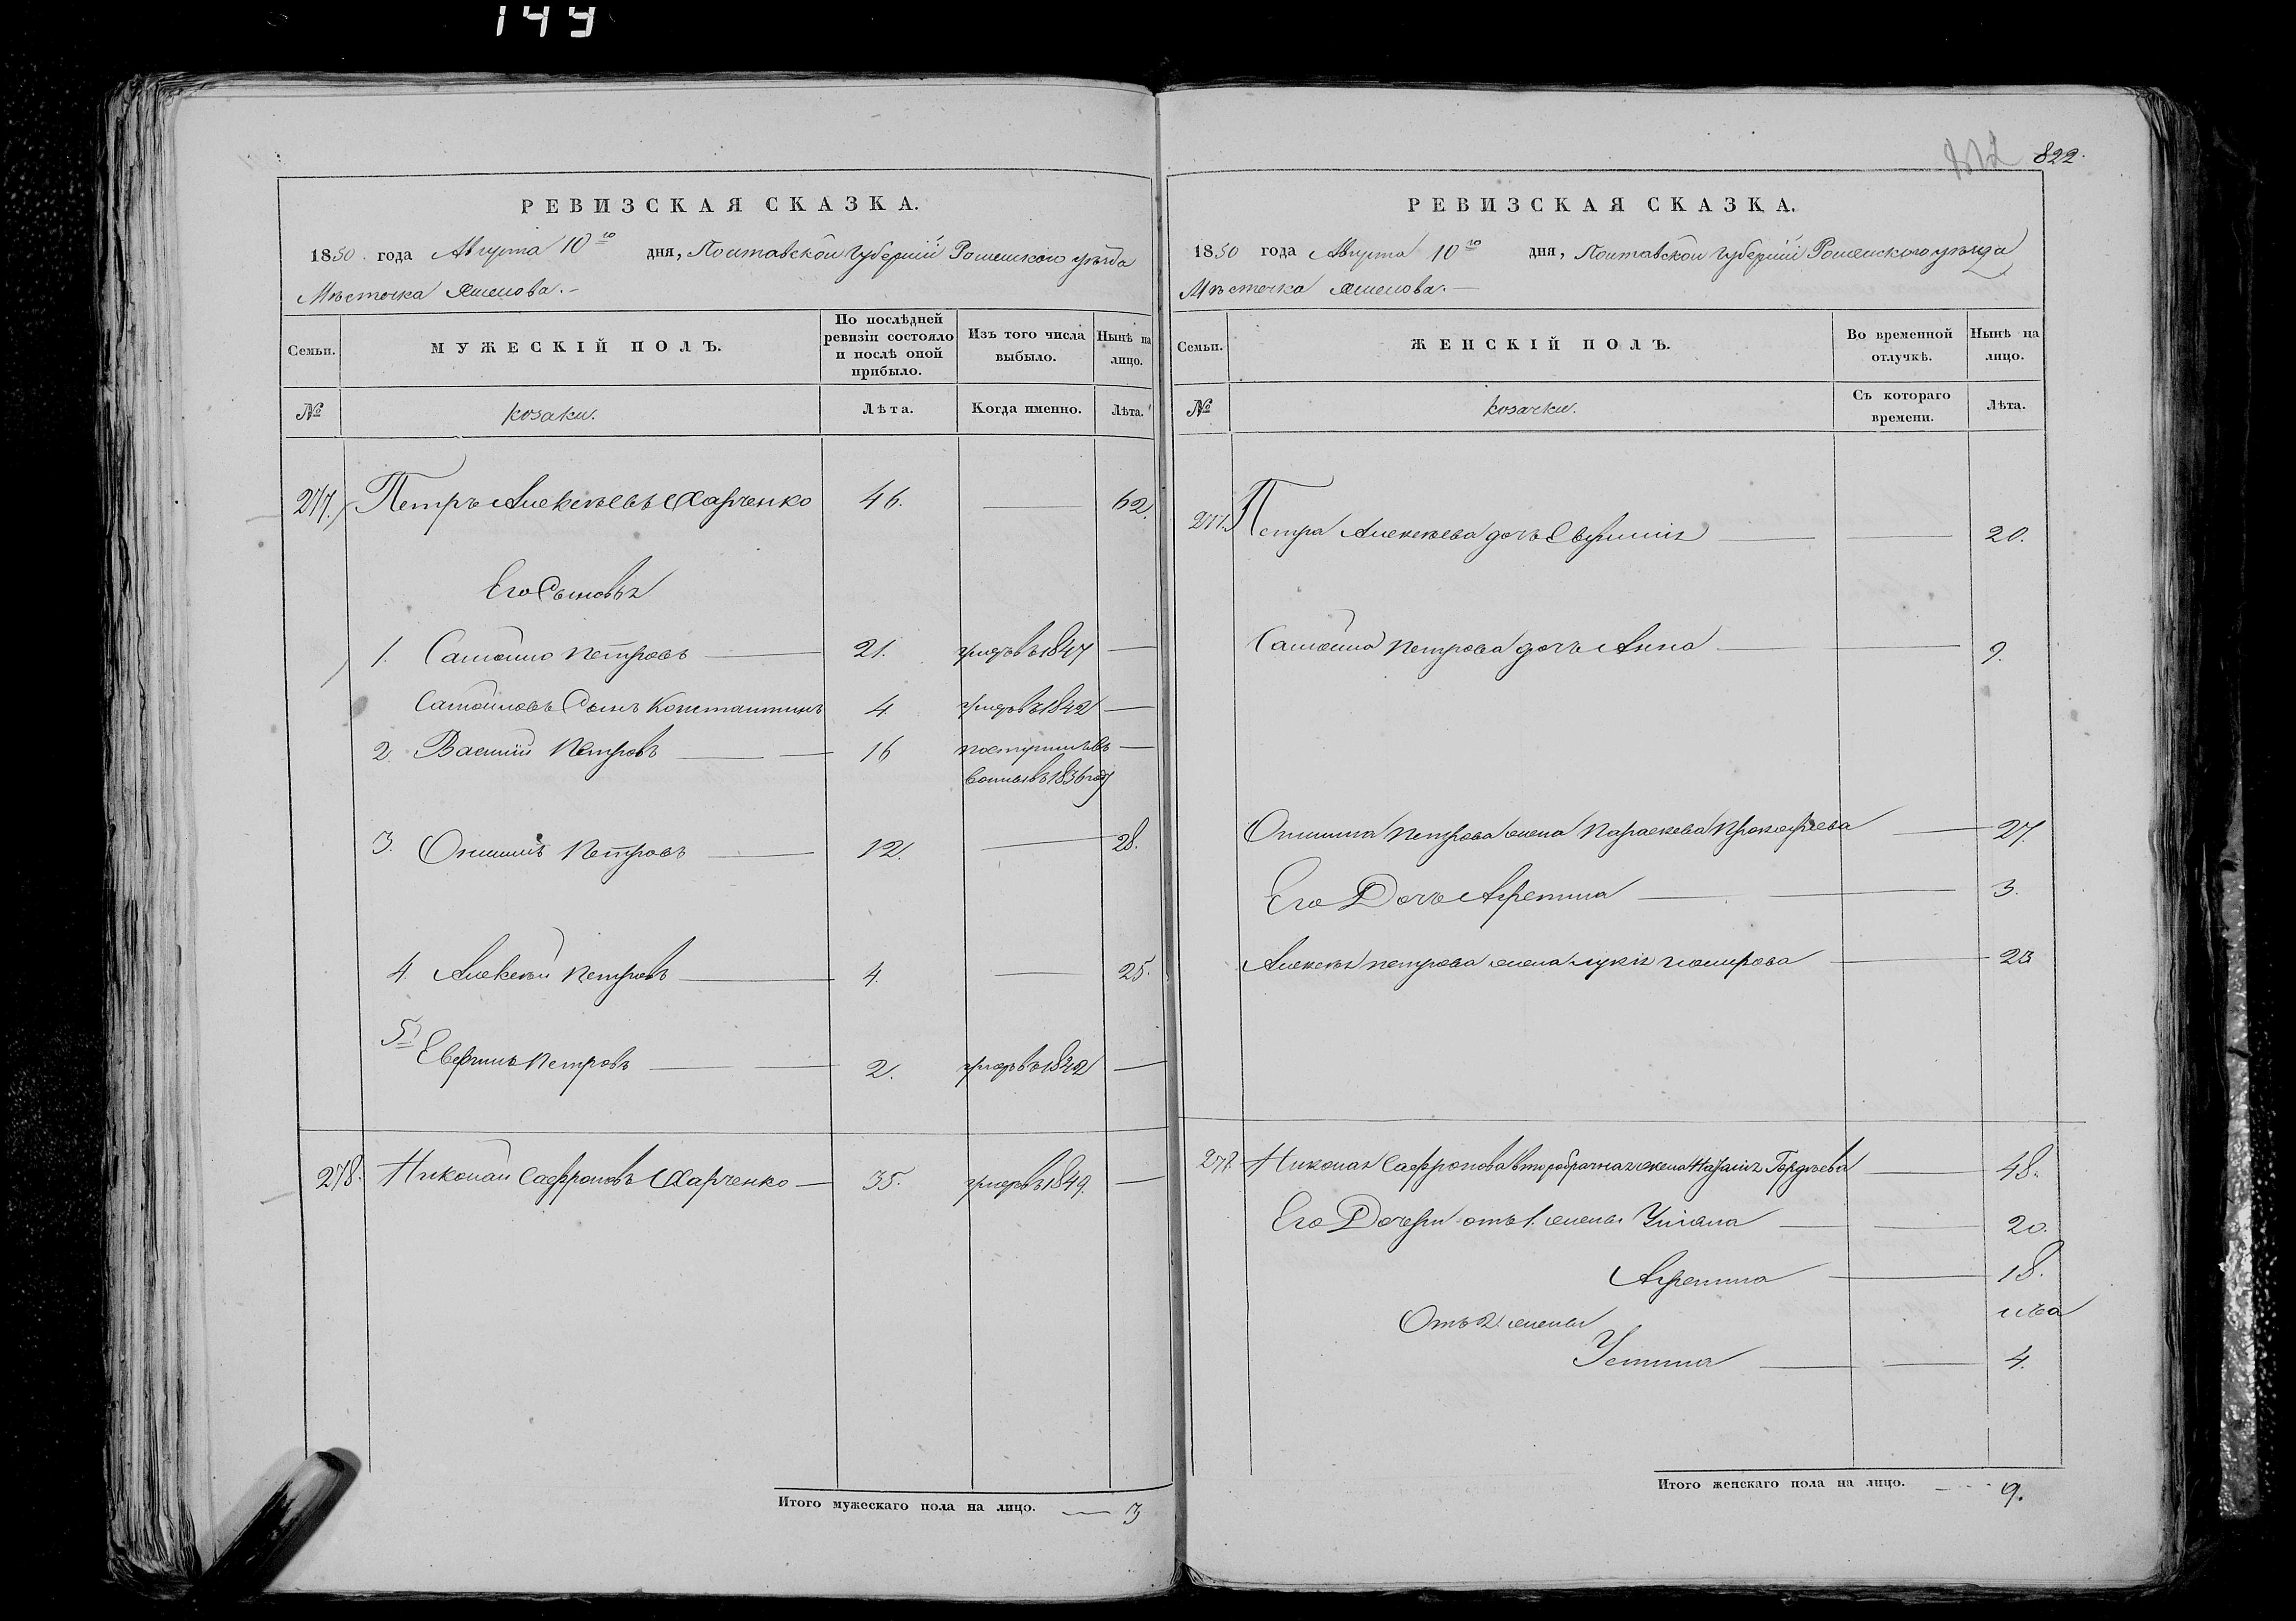 149
822.
РЕВИЗСКАЯ СКАЗКА.
1850 года Августа 10го дня, Полтавской Губернiи Роменского уѣзда
Мѣстечка
Семьи.
МУЖЕСКІЙ ПОЛЪ.
По послѣдней ревизіи состояло и послѣ оной прибыло.
Изъ того числа выбыло.
Нынѣ на лицо.
№
козаки.
Лѣта.
Когда именно.
Лѣта.
277. Петръ Алексѣевъ Харченко 46. 62.
Его Сыновья
1. Самойло Петровъ 21. умеръ въ 1847
Самойловъ Сынъ Константинъ 4 умеръ въ 1842
2. Василій Петровъ 16
въ 1836 году
3. Петровъ 12. 28.
4 Алексѣй Петровъ 4. 25.
5 Петровъ 2. умеръ въ 1842
278. Николай Сафроновъ Харченко 35. умеръ въ 1849.
Итого мужескаго пола на лицо. 3
РЕВИЗСКАЯ СКАЗКА.
1850 года Августа 10го дня, Полтавской Губернiи Роменского уѣзда
Мѣстечка
Семьи.
ЖЕНСКІЙ ПОЛЪ.
Во временной отлучкѣ.
Нынѣ на лицо.
№
козачки.
Съ котораго времени.
Лѣта.
277. Петра Алексѣева дочь 20.
Самойла Петрова дочь Анна 9.
Петрова жена Параскева Прокофьева 27.
Его Дочь Агрепина 3.
Алексѣя Петрова жена 23
278. Николая Сафронова второбрачная жена Наталія Гордѣева 48.
Его Дочери отъ 1. жены Уліана 20.
Агрепина 18.
Отъ 2. жены
Устина 4.
Итого женскаго пола на лицо. 9.